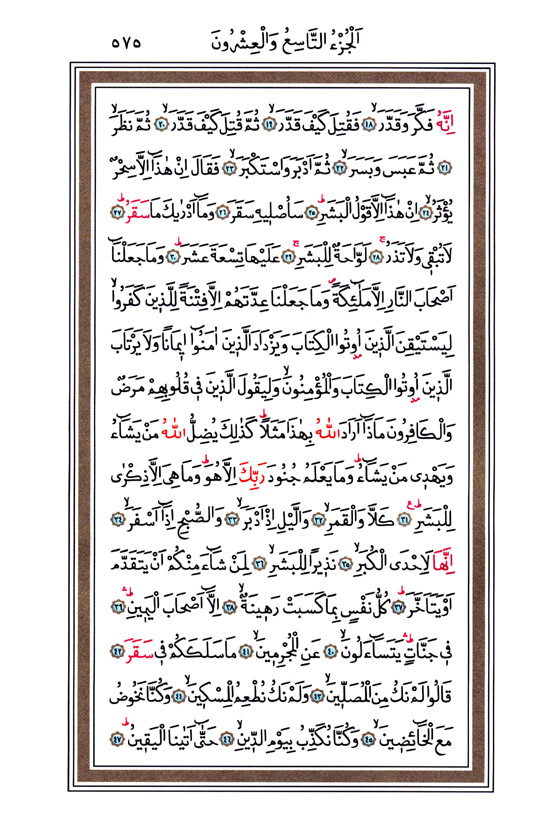 اَلْجُزْءُ التَّاسِعُ وَالْعِشْرُونَ ٥٧٥
اِنَّهُ فَكَّرَ وَقَدَّرَۙ ﴿١٨﴾ فَقُتِلَ كَيْفَ قَدَّرَۙ ﴿١٩﴾ ثُمَّ قُتِلَ كَيْفَ قَدَّرَۙ ﴿٢٠﴾ ثُمَّ نَظَرَۙ
﴿٢١﴾ ثُمَّ عَبَسَ وَبَسَرَۙ ﴿٢٢﴾ ثُمَّ اَدْبَرَ وَاسْتَكْبَرَۙ ﴿٢٣﴾ فَقَالَ اِنْ هٰذَٓا اِلَّا سِحْرٌ
يُؤْثَرُۙ ﴿٢٤﴾ اِنْ هٰذَٓا اِلَّا قَوْلُ الْبَشَرِۜ ﴿٢٥﴾ سَاُصْلِيهِ سَقَرَ ﴿٢٦﴾ وَمَٓا اَدْرٰيكَ مَا سَقَرُۜ ﴿٢٧﴾
لَا تُبْقِي وَلَا تَذَرُۚ ﴿٢٨﴾ لَوَّاحَةٌ لِلْبَشَرِۚ ﴿٢٩﴾ عَلَيْهَا تِسْعَةَ عَشَرَۜ ﴿٣٠﴾ وَمَا جَعَلْنَٓا
اَصْحَابَ النَّارِ اِلَّا مَلٰٓئِكَةًۖ وَمَا جَعَلْنَا عِدَّتَهُمْ اِلَّا فِتْنَةً لِلَّذِينَ كَفَرُواۙ
لِيَسْتَيْقِنَ الَّذِينَ اُو۫تُوا الْكِتَابَ وَيَزْدَادَ الَّذِينَ اٰمَنُٓوا اِيمَانًا وَلَا يَرْتَابَ
الَّذِينَ اُو۫تُوا الْكِتَابَ وَالْمُؤْمِنُونَۙ وَلِيَقُولَ الَّذِينَ فِي قُلُوبِهِمْ مَرَضٌ
وَالْكَافِرُونَ مَاذَٓا اَرَادَ اللّٰهُ بِهٰذَا مَثَلًاۜ كَذٰلِكَ يُضِلُّ اللّٰهُ مَنْ يَشَٓاءُ
وَيَهْدِي مَنْ يَشَٓاءُۜ وَمَا يَعْلَمُ جُنُودَ رَبِّكَ اِلَّا هُوَۜ وَمَا هِيَ اِلَّا ذِكْرٰى
لِلْبَشَرِۜ۟ ﴿٣١﴾ كَلَّا وَالْقَمَرِۙ ﴿٣٢﴾ وَالَّيْلِ اِذْ اَدْبَرَۙ ﴿٣٣﴾ وَالصُّبْحِ اِذَٓا اَسْفَرَۙ ﴿٣٤﴾
اِنَّهَا لَاِحْدَى الْكُبَرِۙ ﴿٣٥﴾ نَذِيرًا لِلْبَشَرِۙ ﴿٣٦﴾ لِمَنْ شَٓاءَ مِنْكُمْ اَنْ يَتَقَدَّمَ
اَوْ يَتَاَخَّرَۜ ﴿٣٧﴾ كُلُّ نَفْسٍ بِمَا كَسَبَتْ رَهِينَةٌۙ ﴿٣٨﴾ اِلَّٓا اَصْحَابَ الْيَمِينِۜۛ ﴿٣٩﴾
فِي جَنَّاتٍۜۛ يَتَسَٓاءَلُونَۙ ﴿٤٠﴾ عَنِ الْمُجْرِمِينَۙ ﴿٤١﴾ مَا سَلَكَكُمْ فِي سَقَرَ ﴿٤٢﴾
قَالُوا لَمْ نَكُ مِنَ الْمُصَلِّينَۙ ﴿٤٣﴾ وَلَمْ نَكُ نُطْعِمُ الْمِسْكِينَۙ ﴿٤٤﴾ وَكُنَّا نَخُوضُ
مَعَ الْخَٓائِضِينَۙ ﴿٤٥﴾ وَكُنَّا نُكَذِّبُ بِيَوْمِ الدِّينِۙ ﴿٤٦﴾ حَتّٰٓى اَتٰينَا الْيَقِينُۜ ﴿٤٧﴾